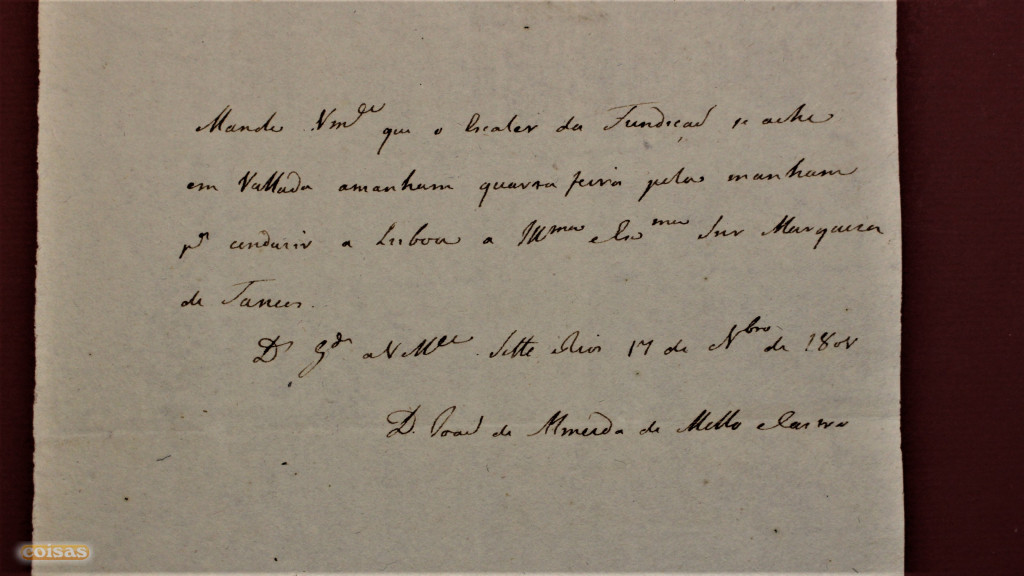 Mande Vm.de que o Escaler da Fundição se ache
em Vallada amanham quarta feira pela manham
p.a conduzir a Lisboa a Ill.ma e Ex.ma Snr.a Marqueza
de Tancos.
D.s g.de a V M.ce Sette Rios 17 de Nbro de
D. João de Almeida de Mello e Castro
coisas